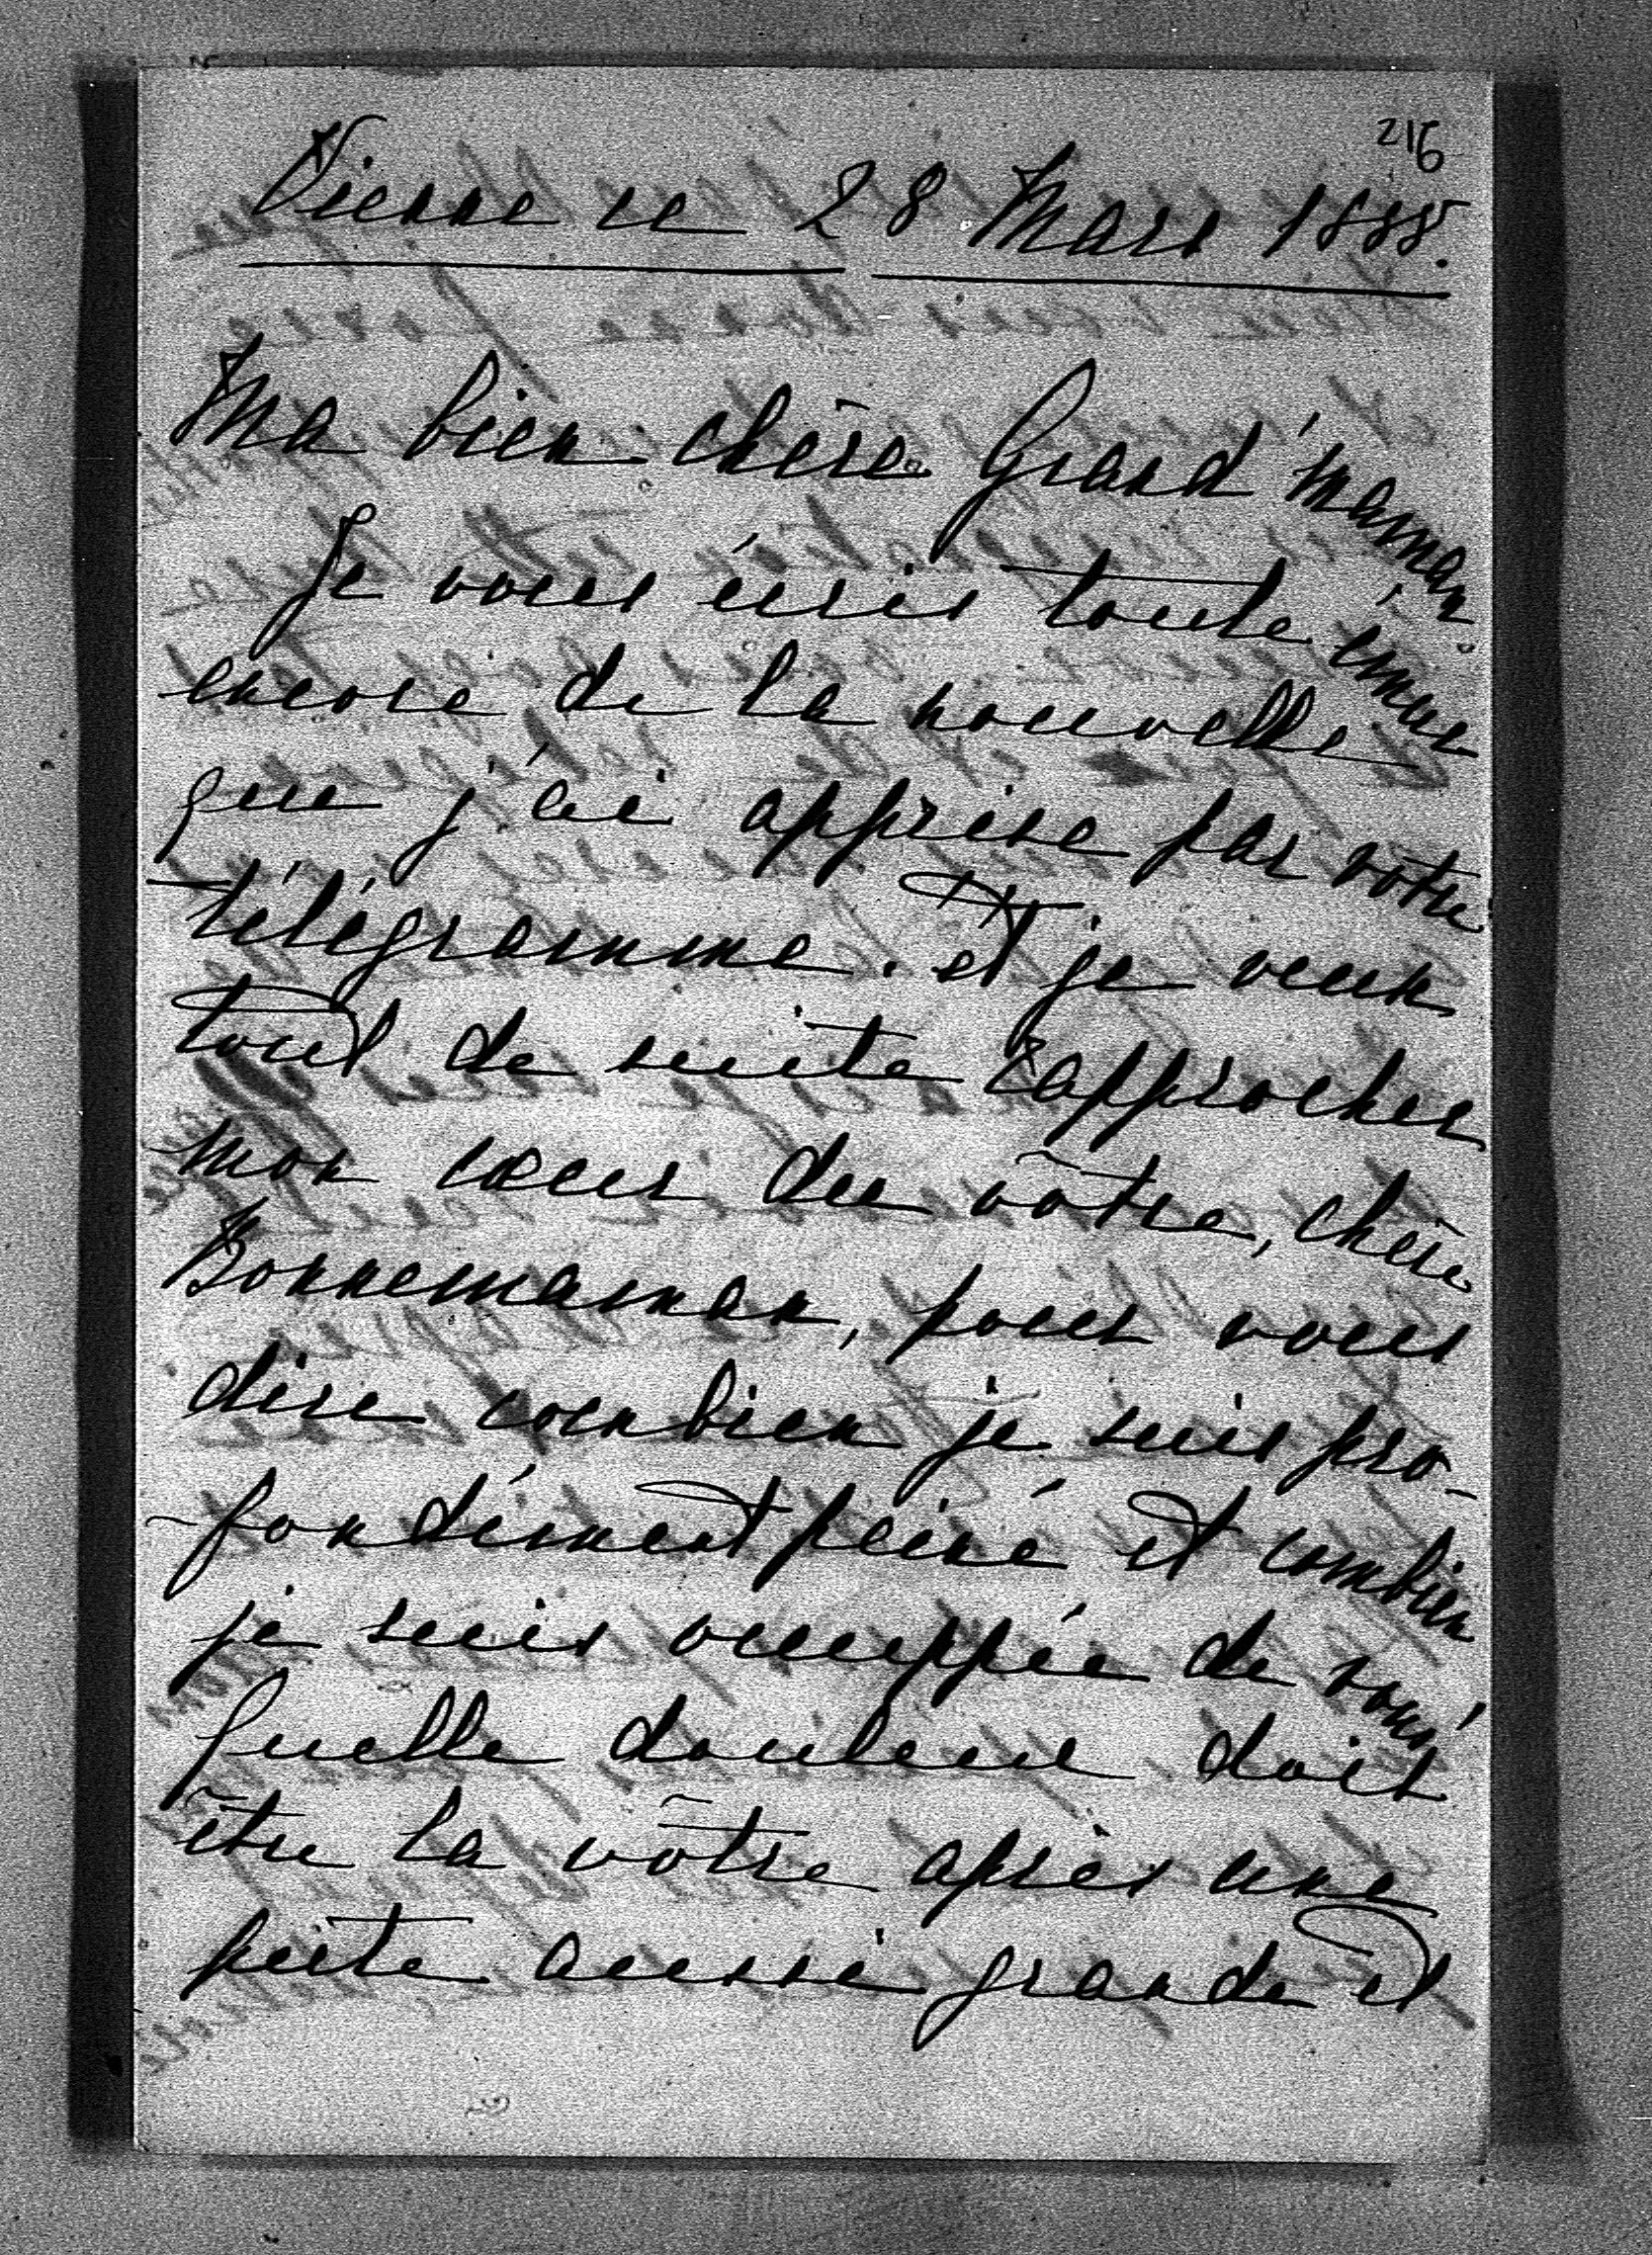 216
Vienne ce 28 Mars 1888.
Ma bien chère Grand'maman.
Je vous écris toute émue
encore de la nouvelle
que j'ai apprise par votre
télégramme. et je veux
tout de suite rapprocher
mon cœur du vôtre, chère
Bonnemaman, pour vous
dire combien je suis pro-
-fondément peiné et combien
je suis occuppée de vous!
Quelle douleur doit
être la vôtre après une
perte aussi grande et